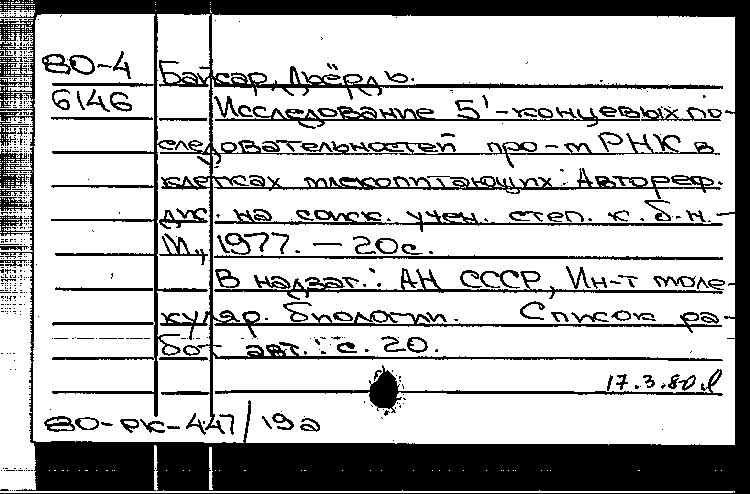 80-4 Байсар, Дьёрдь.
6146 Исследование 5'-концевых по-
следовательностей про-mРНК в
клетках млекопитающих: Автореф.
дис. на соиск. учен. степ. к. б. н. -
М., 1977. - 20с.
В надзаг.: АН СССР, Ин-т моле-
куляр. биологии. Список ра-
бот авт.: с. 20.
17.3.80
80-РК-447/19а